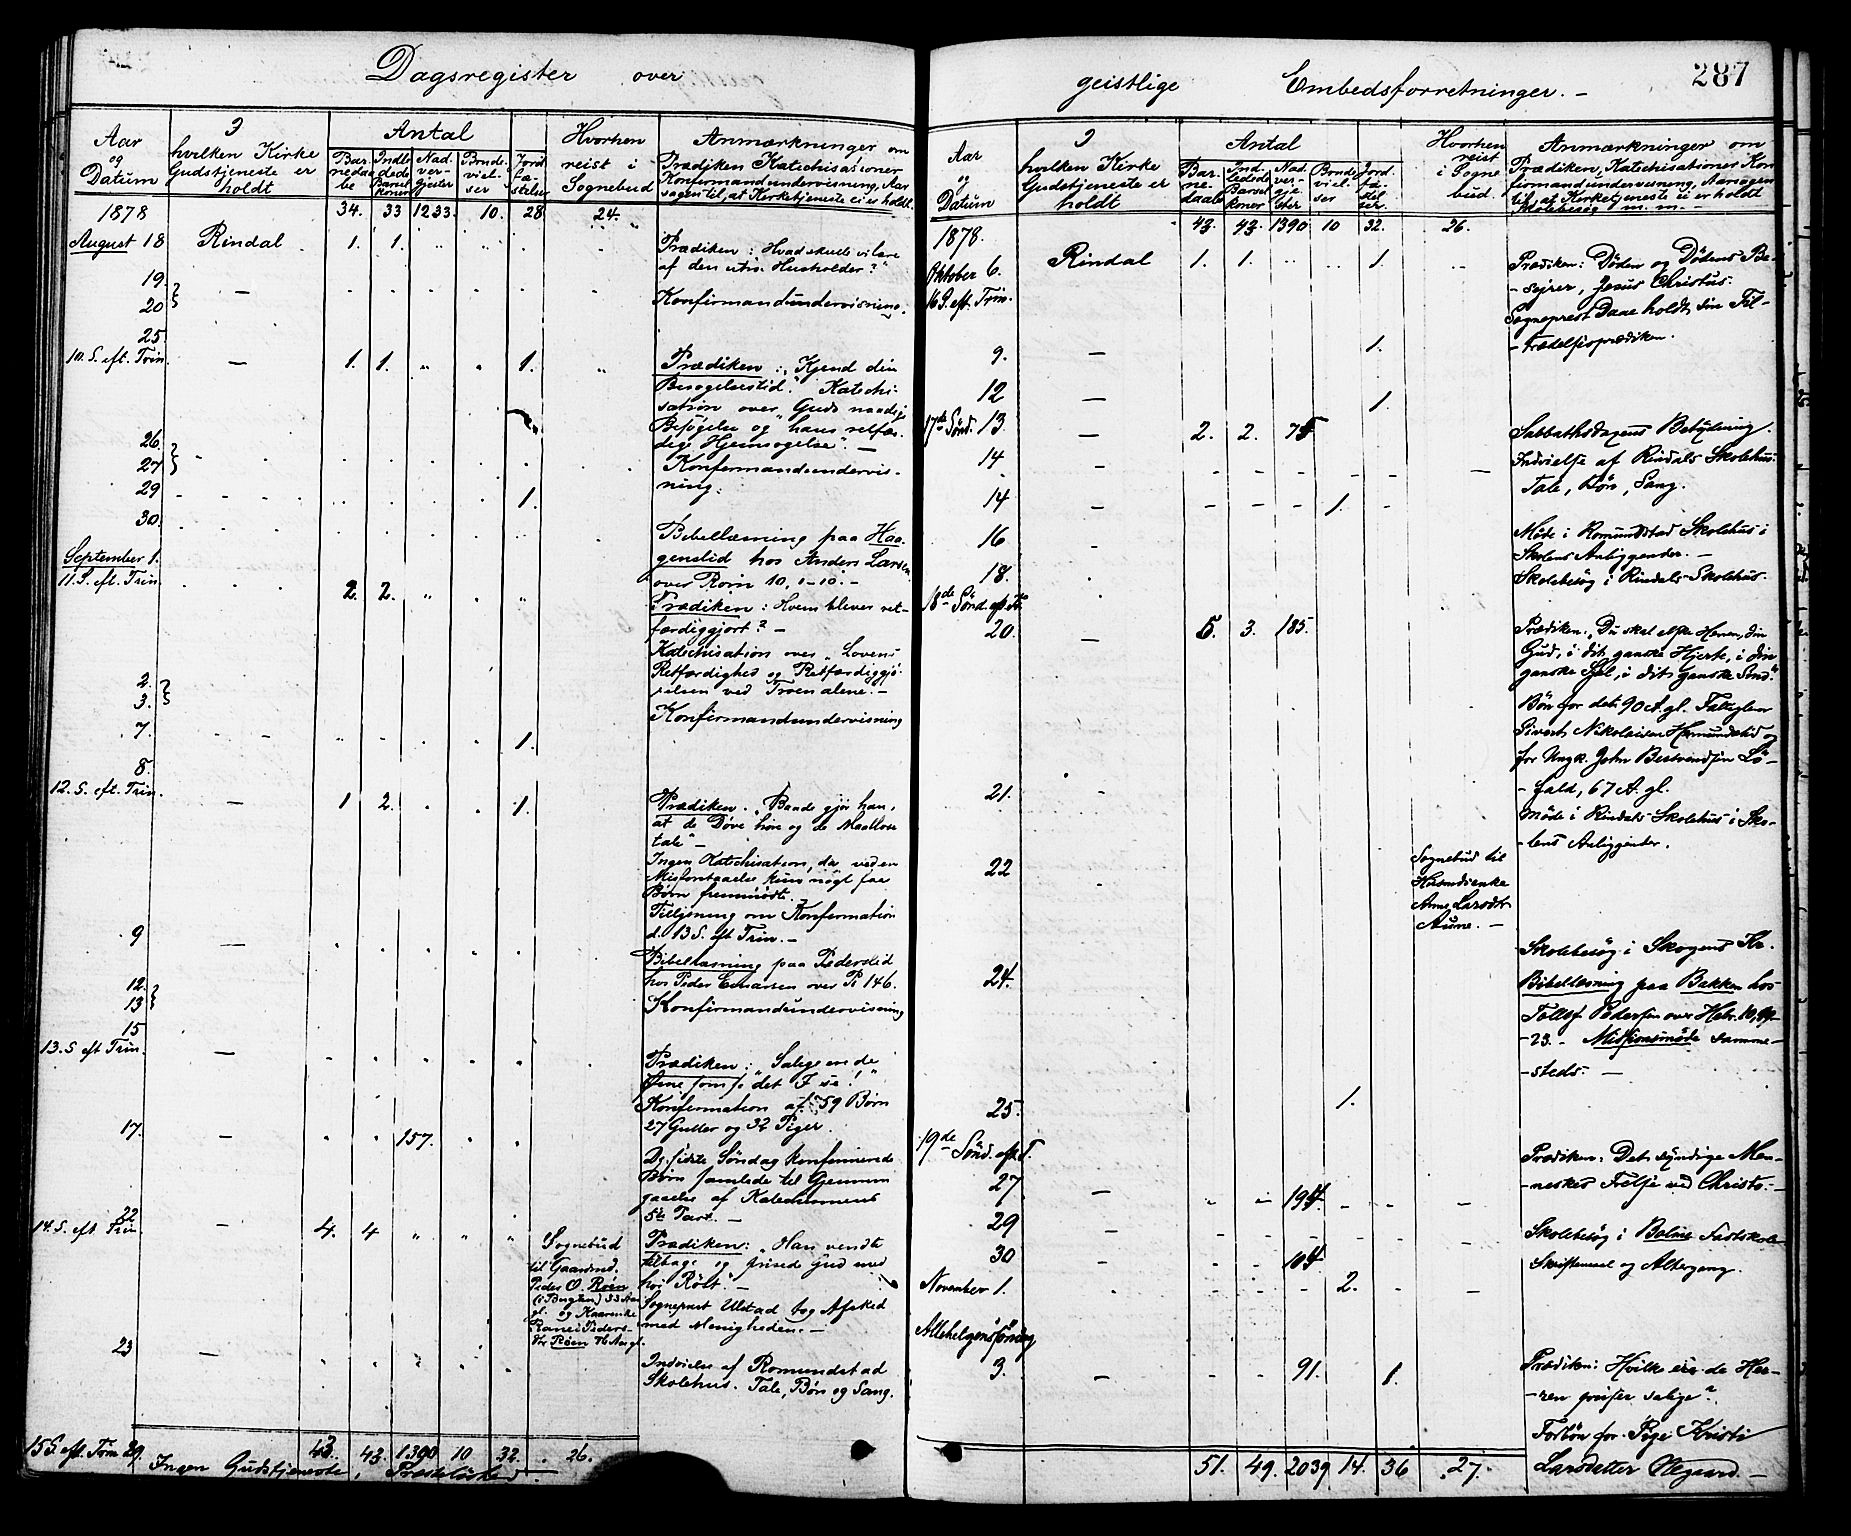 Dagsregister over
Aar og Datum
I hvilken Kirke Gudstjeneste er holdt
Antal
Barnedaabe
Indledede Barselkoner
Nadvergjester
Brudevielser
Jordfæstelser
Hvorhen reist i Sognebud
Anmærkninger om Prædiken Katechisasioner Konfirmandundervisning, Aarsagen til, at Kirketjeneste ei er holdt.
1878 34. 33 1233. 10. 28 24.
August 18 Rindal 1. 1.
Prædiken: Hvad skulle vi lære
af den utro Husholder?"
19.
20 — Konfirmandundervisning.
25
10. S. eft. Trin. — 1. 1. 1.
Prædiken: „Kjend din
Besøgelsestid." Katechi-
sation over „Guds naadige
Besøgelse og „hans retfær-
dige Hjemsøgelse". —
26.
27
Konfirmandundervis-
ning.
29 1.
30.
Bibellæsning paa Haa-
genslid hos Anders Larsen
over Rom 10, 1-10. —
September 1.
11. S. eft. Trin. 2. 2.
Prædiken: Hvem blever ret-
færdiggjort? —
Katechisation over „Lovens
Retfærdighed og Retfærdiggjø-
relsen ved Troen alene. —
2.
3.
Konfirmandundervisning
7. 1.
8.
12. S. eft. Trin. — 1 2. 1.
Prædiken. „Baade gjør han,
at de Døve høre og de Maalløse
tale" —
Ingen Katechisation, da ved en
Misforstaaelse kun nogle faa
Børn fremmødte.
Tilljsning om Konfirmation
d. 13 S. eft Trin. —
9 —
Bibellæsning paa Pederslid
hos Peder Einarsen over Ps 146.
12.
13
Konfirmandundervisning
15
13. S eft Trin. —
Prædiken: „Salige ere de
Øine som se det I se!"
Konfirmation af 59 Børn
27 Gutter og 32 Piger.
17. — 157.
De sidste Søndag konfirmerede
Børn samlede til Gjennem
gaaelse af Katechismens
5te Part. —
22
14. S. eft Trin. — 4. 4
Sognebud
til Gaardmd.
Peder O. Røen
Prædiken: „Han vendte
tilbage og prisede Gud med
høi Røst". —
Sogneprest Ulstad tog Afsked
med Menigheden. —
23 —
Indvielse af Romundstad
Skolehus. Tale, Bøn og Sang.
43. 43. 1390 10 32. 26.
15 S. eft. Trin 29. Ingen Gudstjeneste,
geistlige Embedsforretninger. — 287
Aar og Datum
I hvilken Kirke Gudstjeneste er holdt
Antal
Barnedaab
Indledede Barselkoner
Nadvergjester
Brudevielser
Jordfæstelser.
Hvorhen reist i Sognebud.
Anmærkninger om Prædiken, Katechisationer Konfirmandundervisning, Aarsagen til, at Kirketjeneste ei er holdt Skolebesøg m. m.
1878. 43. 43. 1390 10 32. 26.
Oktober 6. Rindal 1. 1. 1.
16 S. eft. Trin.
Prædiken: Døden og Dødens Be-
-sejrer, Jesus Christus.
Sogneprest Daae holdt sin Til-
-trædelsesprædiken.
9. — 1.
12 — 1.
17de Sønd. 13 — 2. 2. 75
Sabbathsdagens Betydning.
14 —
Indvielse af Rindals Skolehus.
Tale, Bøn, Sang.
14 — 1.
16
Møde i Romundstad Skolehus i
Skolens Anliggender. —
18.
Skolebesøg i Rindals Skolehus.
18de Sønd. ef. Tr.
20. — 5. 3. 185.
Prædiken: „Du skal elske Herren, din
Gud, i dit ganske Hjerte, i din
ganske Sjel, i dit ganske Sind."
Bøn for det 90 A. gl. Fattiglem
Sivert Nikolaisen Hermundslid og
for Ungk. John
-fald, 67 A. gl.
21.
Møde i Rindals Skolehus i Sko-
-lens Anliggender.
22
Sognebud til
Husmdsenke
Anne Larsdtr
Aune. —
Skolebesøg i Skogens Kr.
24.
Bibellæsning paa Bakken hos
Tollef Pedersen over Hebr. 10, 19-
-23. — Missionsmøde samme-
-steds. —
25. 1.
19de Sønd. ef. T.
27 — 194.
Prædiken: Det syndige Men-
-neskes Frelse ved Christo. —
29
Skolebesøg i Bolme Fastskole
30 — 104.
Skriftemaal og Altergang.
November 1. — 2.
Allehelgenssøndag
3. — 91. 1.
Prædiken: Hvilke ere de Her-
-ren priser salige?
Forbøn for Pige Kristi
Larsdatter Negaard. —
51. 49. 2039. 14. 36 27.